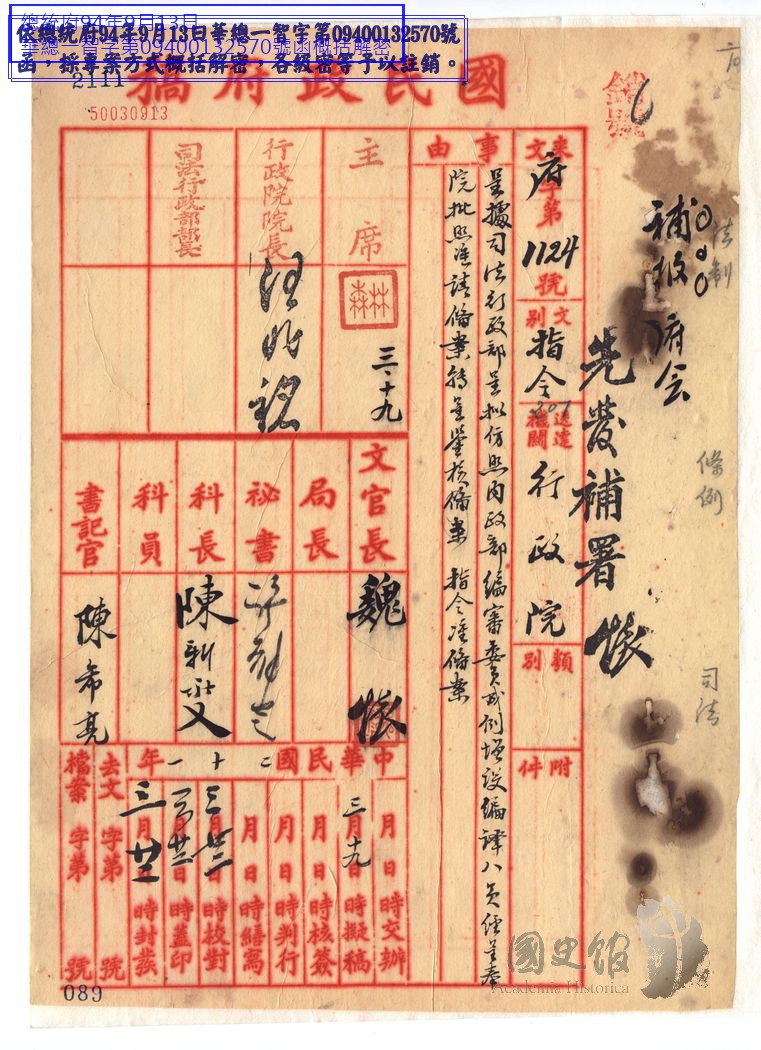 總統府94年9月13日
華總一智字第09400132570號函概括解密
依總統府94年9月13日華總一智字第09400132570號
函，採專案方式概括解密，各級密等予以註銷。
2111
國民政府稿
50030913
錯號
法制
條例
司法
補收府令
先發補署 懷
來文 府第1124號
文別 指令
207
送達機關 行政院
類別
附件
事由
呈據司法行政部呈擬仿照內政部編審委員成例增設編譯八員經呈奉
院批照准請備案轉呈鑒核備案 指令准備案
主席
林森
三、十九
行政院院長
汪兆銘
司法行政部部長
文官長 魏懷
局長
祕書
科長
科員
書記官
陳希亮
中華民國二十一年
月日時交辦
三月十九日時擬稿
月日時核簽
月日時判行
月日時繕寫
三月廿日時校對
三月廿日時蓋印
三月廿日時封發
去文 字第 號
檔案 字第 號
089
國史館
Academia Historica